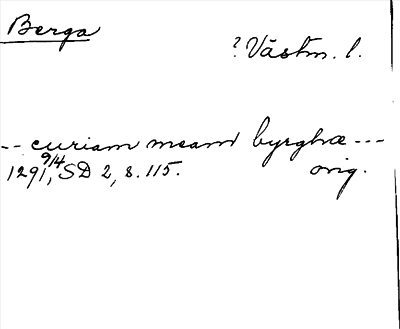 Berga
? Västm. l.
-- curiam meam byrghæ ---
1291 9/4, SD 2, s. 115. orig.